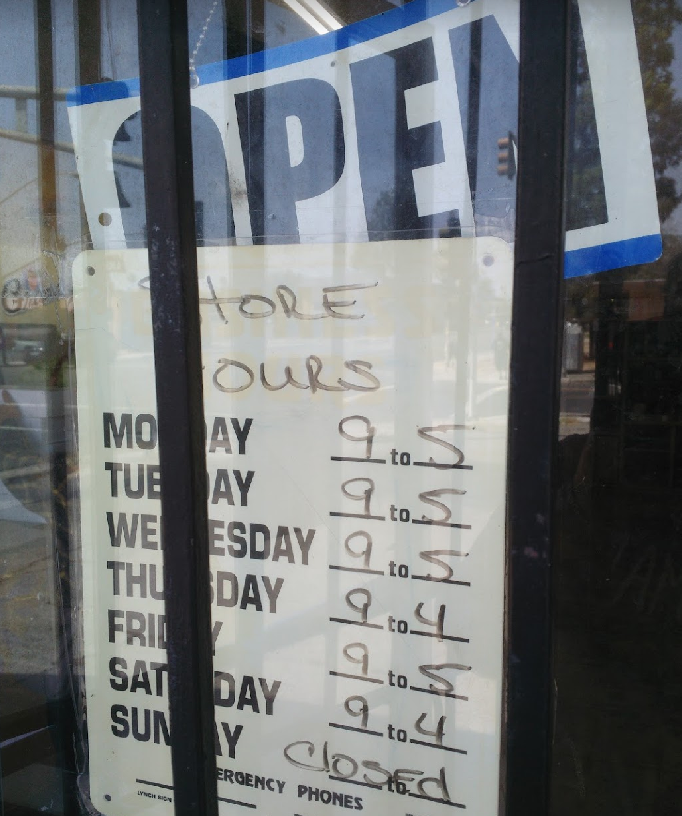 OPEN
STORE
HOURS
MONDAY 9 to 5
TUESDAY 9 to 5
WEDNESDAY 9 to 5
THURSDAY 9 to 4
FRIDAY 9 to 5
SATURDAY 9 to 4
SUNDAY CLOSED to
EMERGENCY PHONES
LYNCH SIGN